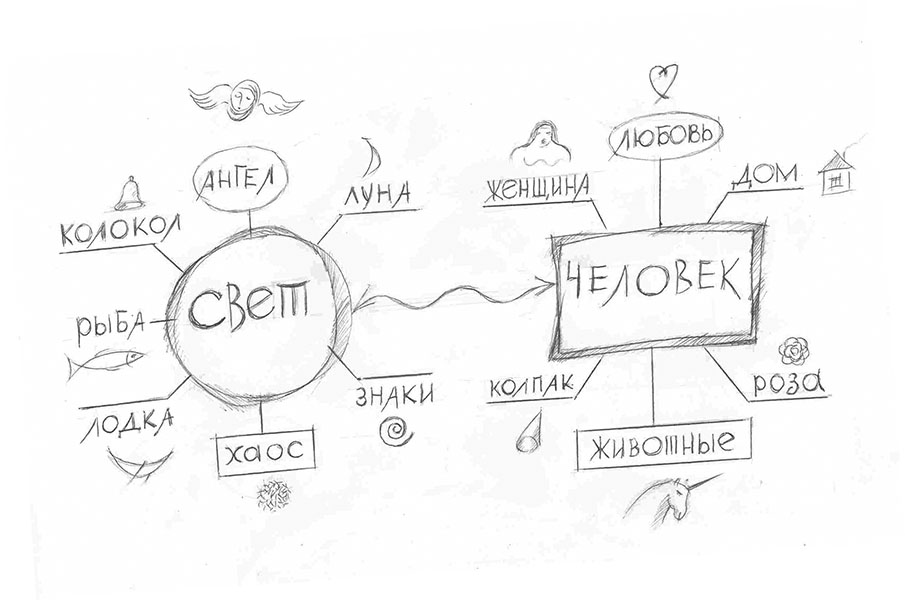 АНГЕЛ
ЛУНА
КОЛОКОЛ
СВЕТ
РЫБА
ЛОДКА
ХАОС
ЗНАКИ
ЛЮБОВЬ
ЖЕНЩИНА
ДОМ
ЧЕЛОВЕК
КОЛПАК
РОЗА
ЖИВОТНЫЕ